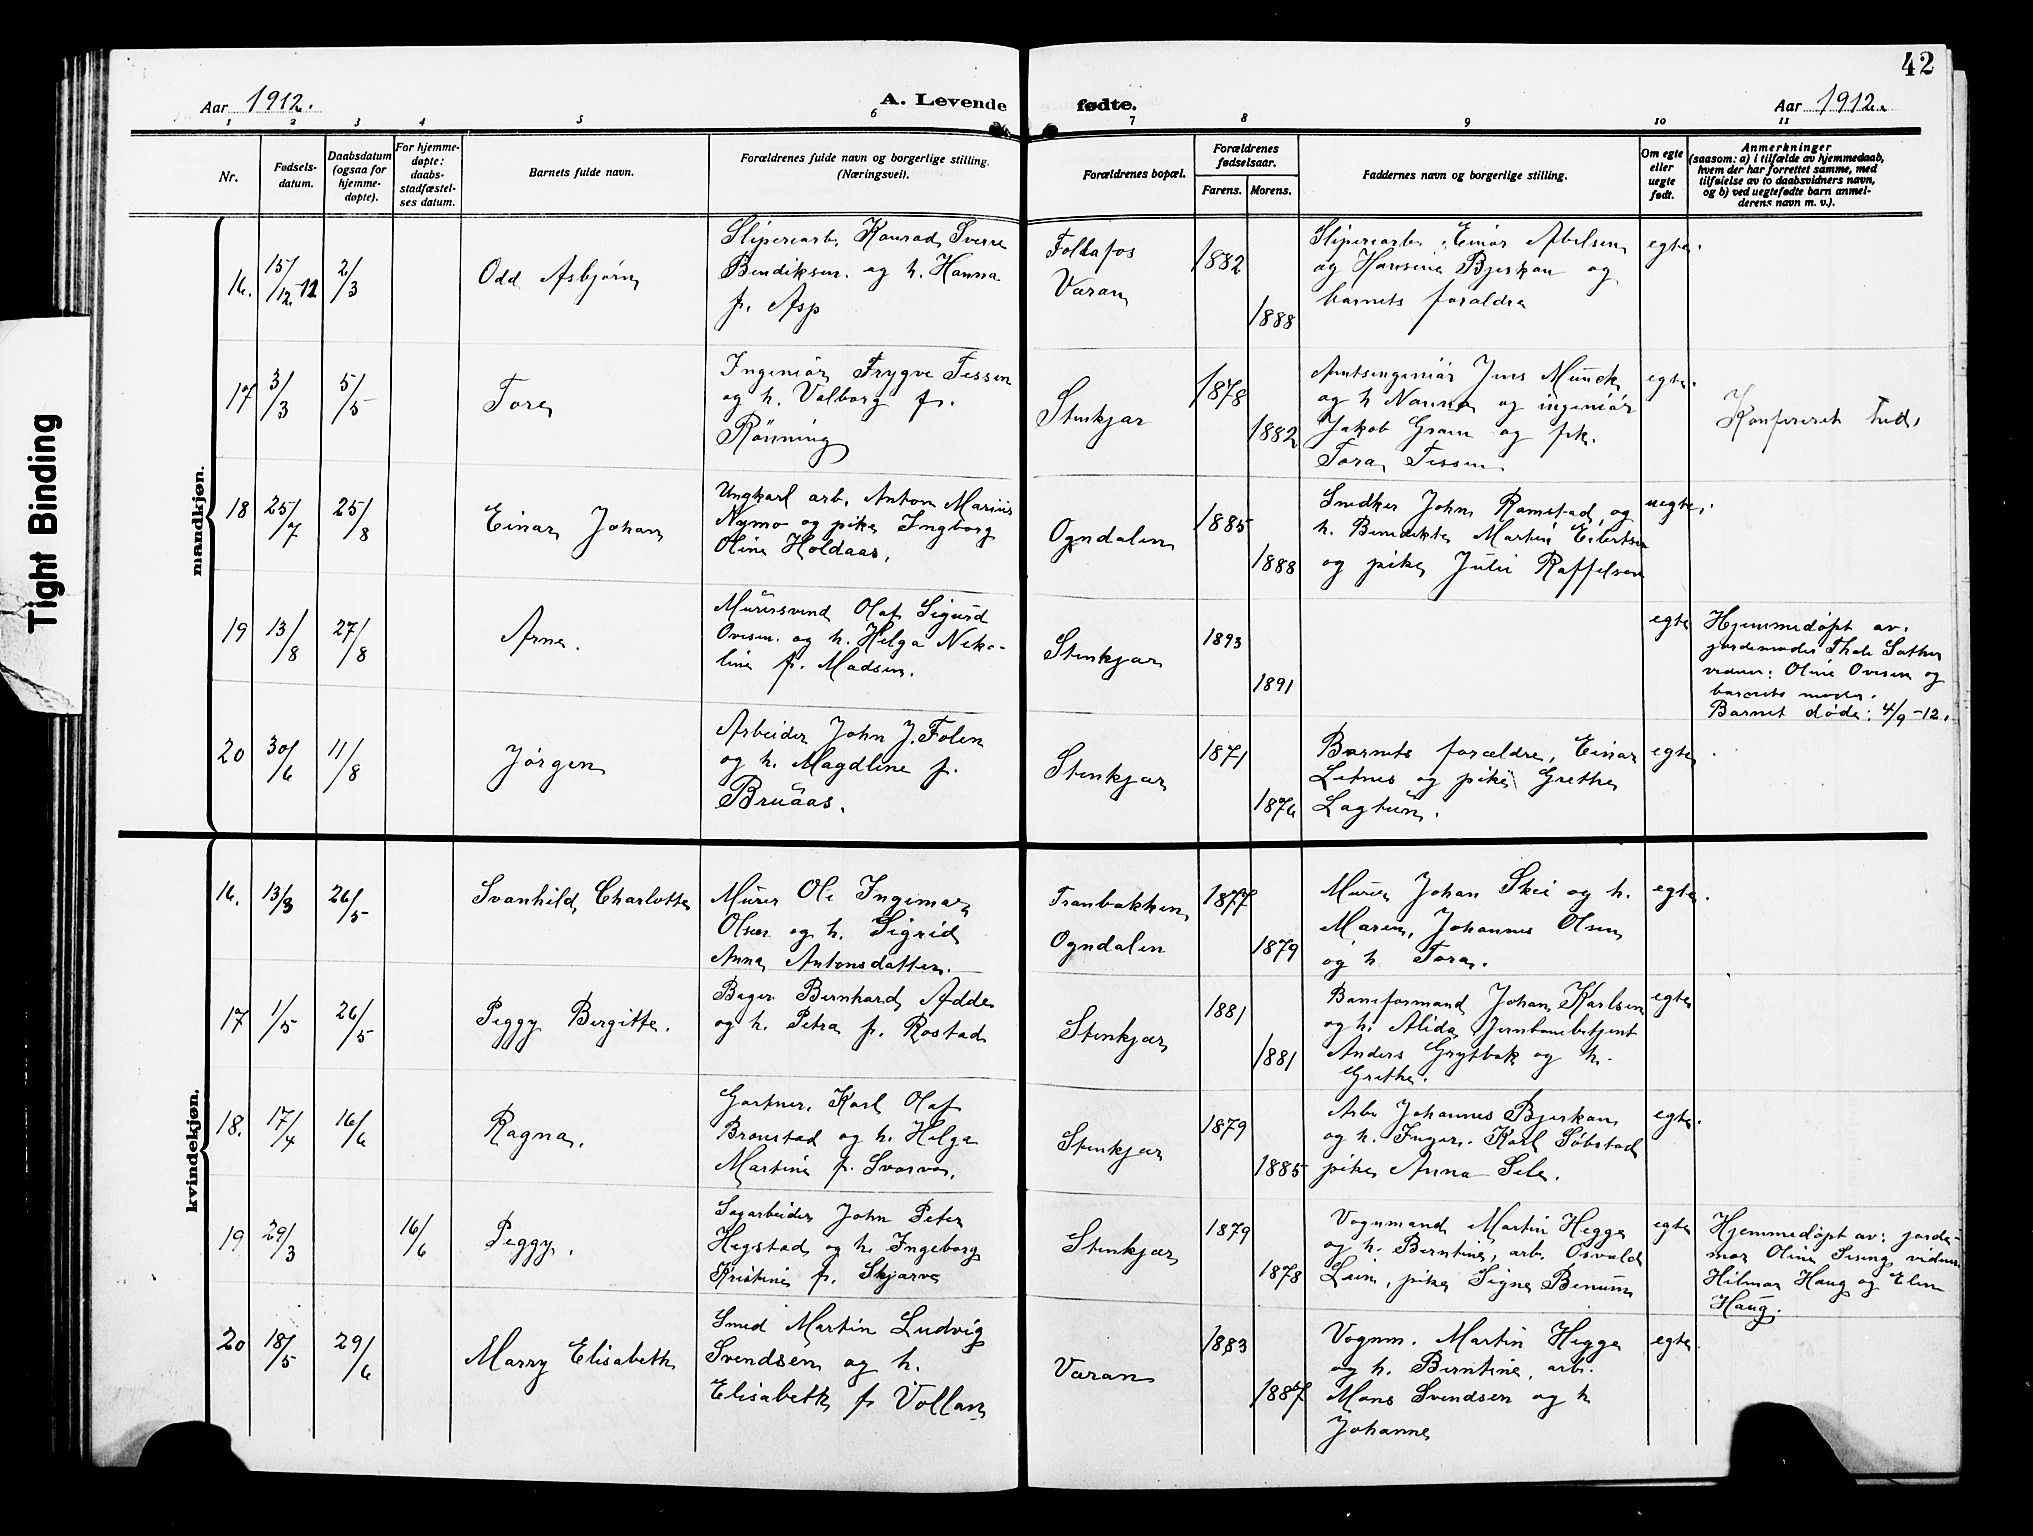 42
Tight Binding
Aar 1912.
A. Levende
fødte.
Aar 1912.
1 2 3 4 5 6 7 8 9 10 11
Nr.
Fødsels-
datum.
Daabsdatum
(ogsaa for
hjemme-
døpte).
For hjemme-
døpte:
daabs-
stadfæstel-
ses datum.
Barnets fulde navn.
Forældrenes fulde navn og borgerlige stilling.
(Næringsvei).
Forældrenes bopæl.
Forældrenes
fødselsaar.
Farens. Morens.
Faddernes navn og borgerlige stilling.
Om egte
eller
uegte
født.
Anmerkninger
(saasom: a) i tilfælde av hjemmedaab,
hvem der har forrettet samme, med
tilføielse av to daabsvidners navn,
og b) ved uegtefødte barn anmel-
derens navn m. v.).
mandkjøn.
16. 15/12 12 2/3
Odd Asbjørn
Sliperiarb. Konrad Sverre
Bendiksen og h. Hanna
f. Asp
Folkafos
Væran
1882
1888
Sliperiarb. Einar Abelsen
og Hansine Bjerkan og
barnets foræeldre
egte.
17 3/3 5/5
Tore
Ingeniør Trygve Tessem
og h. Valborg f.
Rönning
Stenkjær
1878
1882
Amtsingeniør Jens Munck
og h Nanna og ingeniør
Jakob Gram og frk.
Tora Tessem
egte.
Konfereret hid.
18 25/7 25/8
Einar Johan
Ungkarl arb. Anton Marius
Nymo og pike Ingborg
Oline Holdaas.
Ogndalen
1885
1888
Snedker John Ramstad og
h. Benedikte Martin Eilertsen
og pike Julie Raffelsen
uegte.
19 13/8 27/8
Arne.
Murersvend Olaf Sigurd
Ovesen og h. Helga Neko-
line f. Madsen.
Stenkjær
1893
1891
egte
Hjemmedøpt av.
jordemoder Thale Sather
vidner: Oline Ovesen og
barnets moder.
Barnet døde: 4/9-12.
20 30/6 11/8
Jørgen
Arbeider John J. Folen
og h. Magdline f.
Bruaas.
Stenkjær
1871
1876
Barnets forældre, Einar
Letnes og pike Grethe
Lagtun.
egte.
kvindekjøn.
16. 13/3 26/5
Svanhild Charlotte
Murer Ole Ingemar
Olsen og h. Sigrid
Anna Antonsdatter.
Tranbakken
Ogndalen
1877
1879
Murer Johan Skei og h.
Maren, Johannes Olsen
og h Tora.
egte.
17 1/5 26/5
Peggy Bergitte.
Bager Bernhard Adde
og h. Petra f. Rostad
Stenkjær
1881
1881
Baneformand Johan Karlsen
og h. Alida Jernbanebetjent
Anders Grytbak og h.
Grethe.
egte
18. 17/4 16/6
Ragna.
Gartner Karl Olaf
Bronstad og h. Helga
Martine f. Svarva.
Stenkjær
1879
1885
Arb. Johannes Bjerkan
og h. Inger. Karl Søbstad
pike Anna Sele.
egte.
19 29/3 16/6
Peggy.
Sagarbeider John Peter
Hegstad og h. Ingeborg
Kristine f. Skjærve
Stenkjær
1879
1878
Vognmand Martin Hegge
og h. Berntine, arb. Osvald
Lein, pike Signe Benum
egte
Hjemmedøpt av: jorde-
mor Oline Sesing vidner
Hilmar Haug og Elen
Haug.
20 18/5 29/6
Marry Elisabeth
Smed Martin Ludvig
Svendsen og h.
Elisabeth f. Vollan
Væran
1883
1887
Vognm. Martin Hegge
og h. Berntine, arb.
Mons Svendsen og h
Johanne
egte.